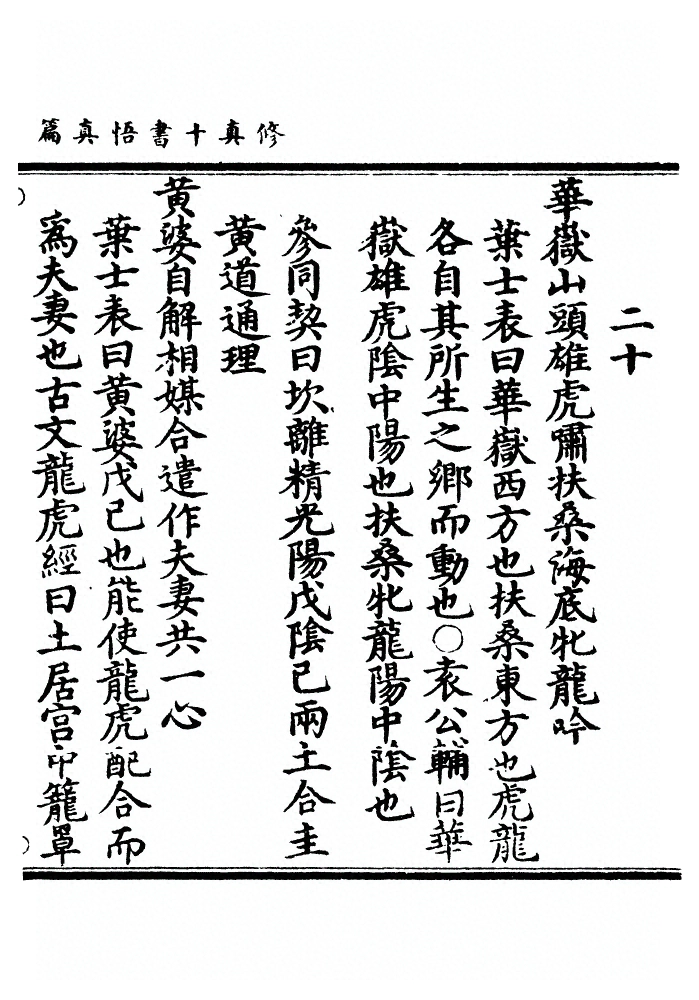 修真十書悟真篇
二十
華嶽山頭雄虎嘯扶桑海底牝龍吟
葉士表曰華嶽西方也扶桑東方也虎龍
各自其所生之鄉而動也〇袁公輔曰華
嶽雄虎陰中陽也扶桑牝龍陽中陰也
參同契曰坎離精光陽戊陰己兩土合圭
黄道通理
黄婆自解相媒合遣作夫妻共一心
葉士表曰黄婆戊己也能使龍虎配合而
為夫妻也古文龍虎經曰土居宫中籠罩